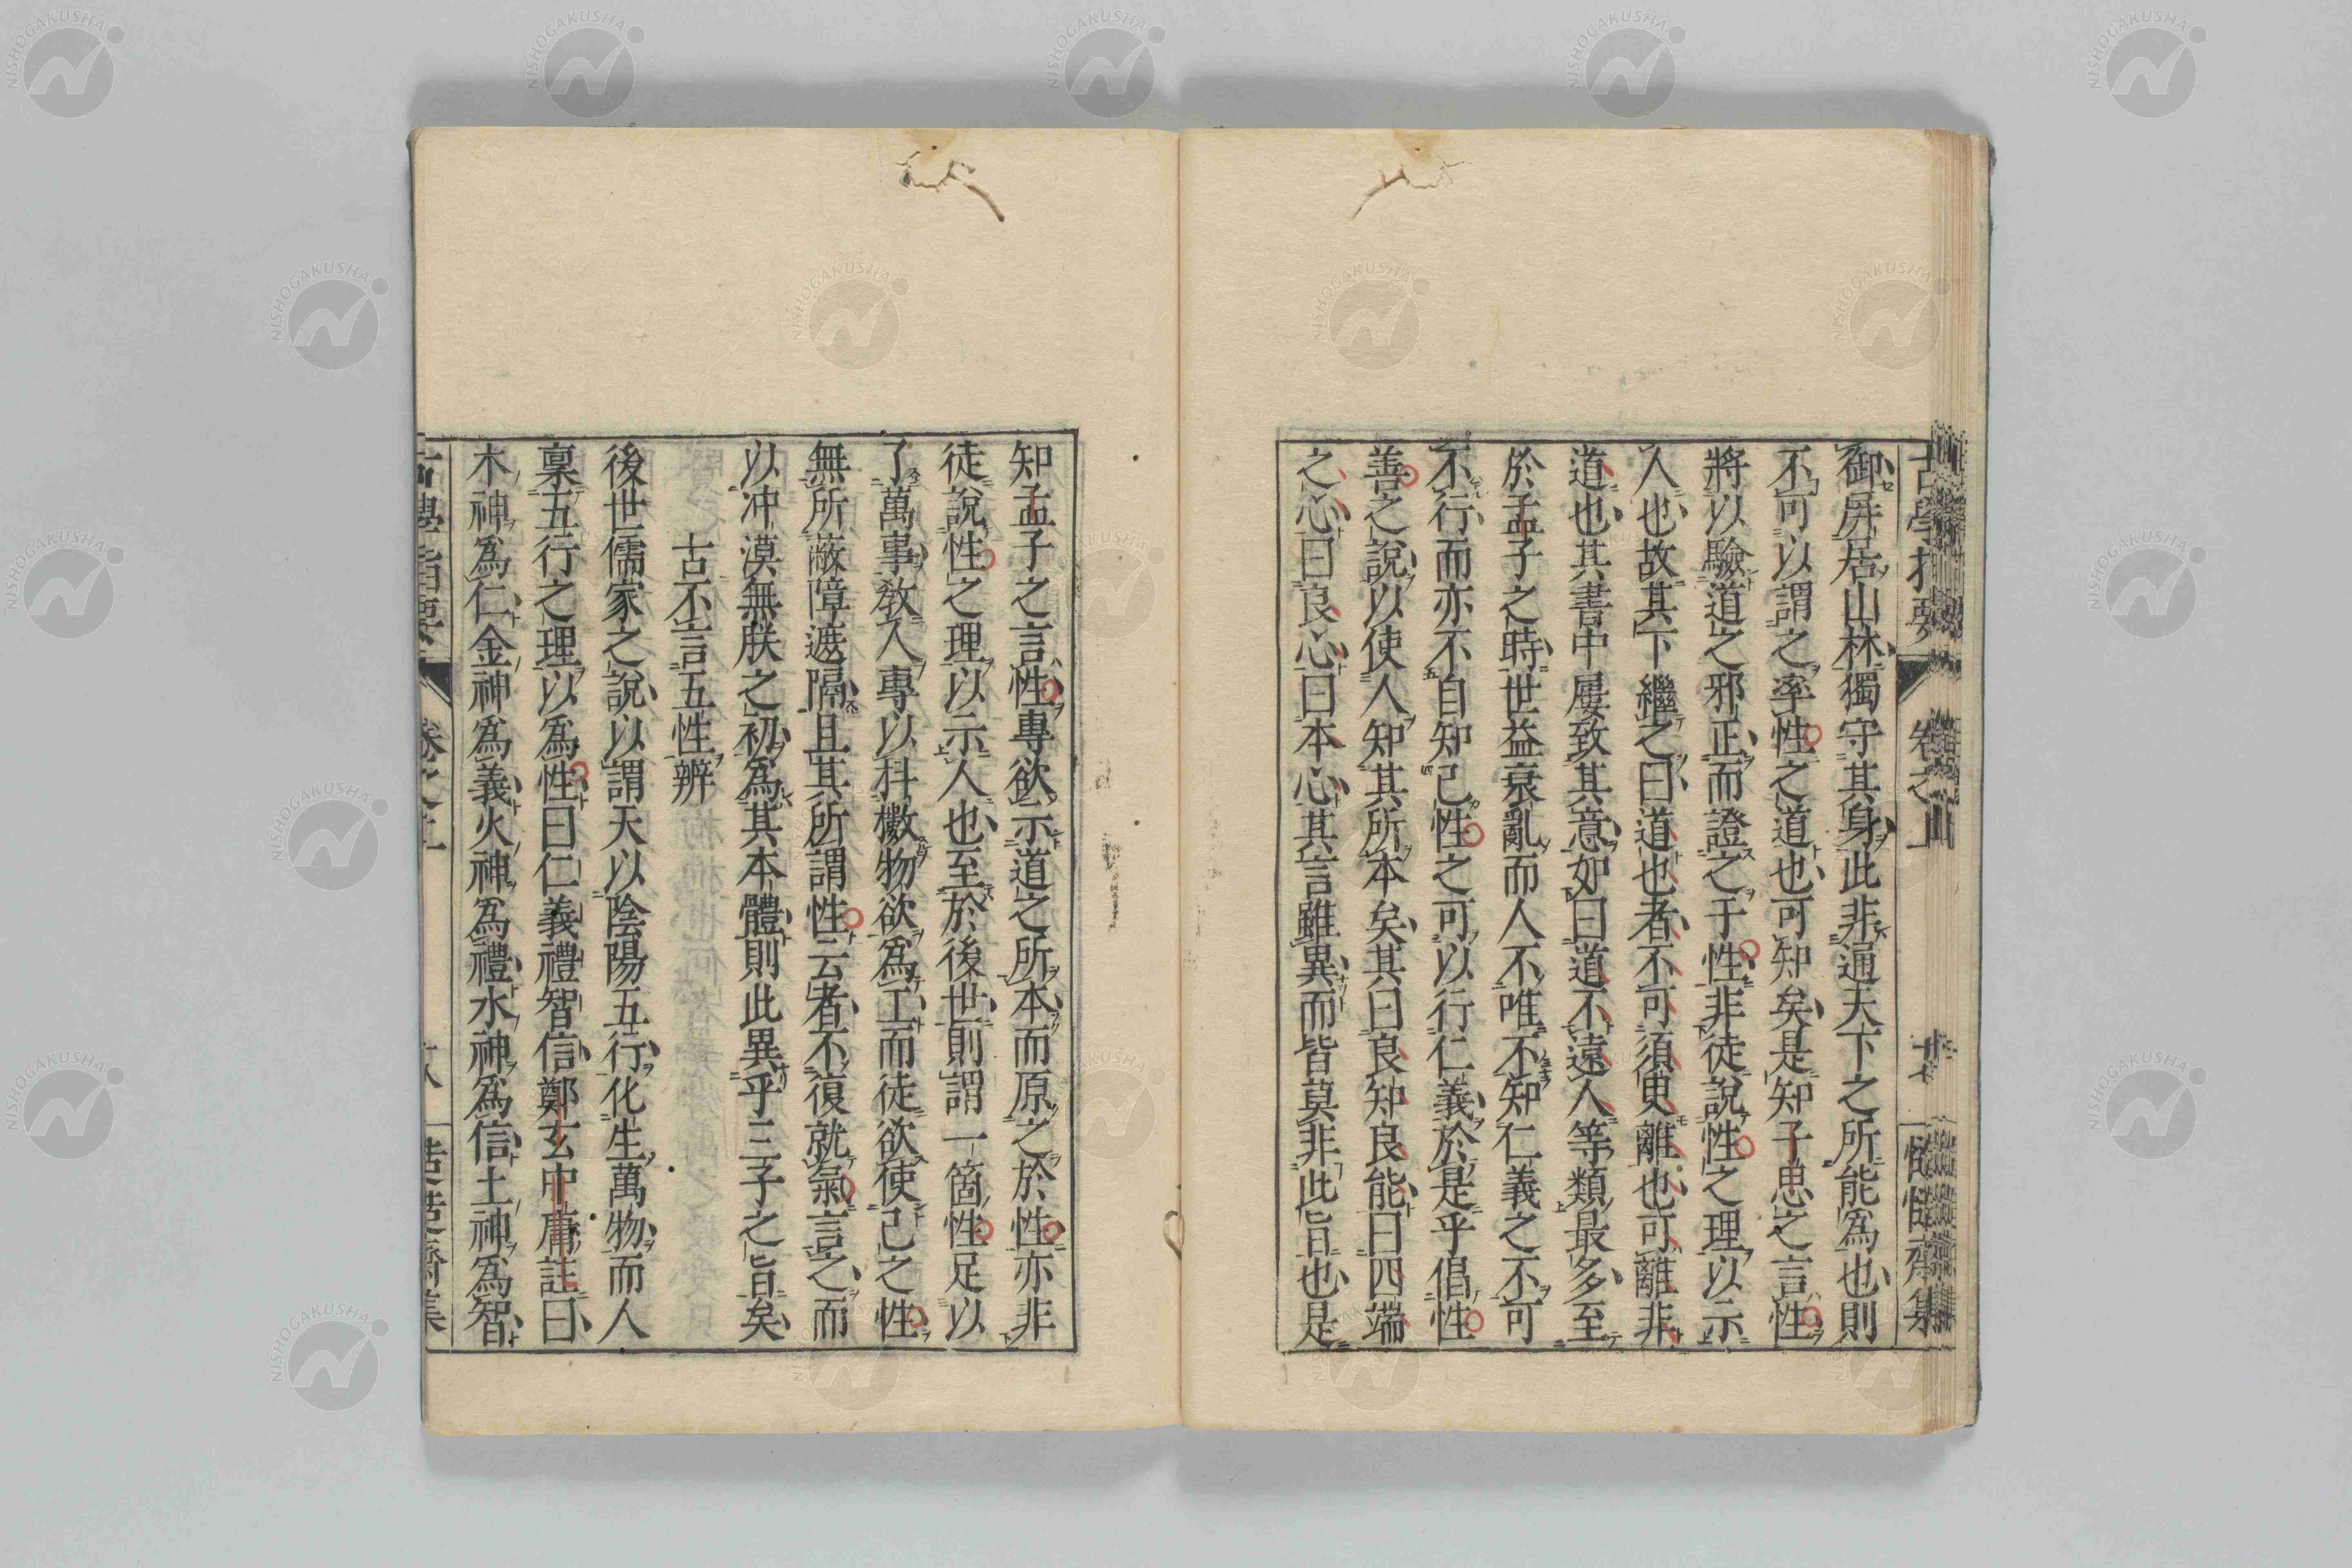 御屏居山林獨守其身此非通天下之所能為也則
不可以謂之率性之道也可知矣是知子思之言性
將以驗道之邪正而證之于性非徒說性之理以示
人也故其下繼之曰道也者不可須臾離也可離非
道也其書中屢致其意如曰道不遠人等類最多至
於孟子之時世益衰亂而人不唯不知仁義之不可
不行而亦不自知己性之可以行仁義於是乎倡性
善之說以使人知其所本矣其曰良知良能曰四端
之心曰良心曰本心其言雖異而皆莫非此旨也是
知孟子之言性專欲示道之所本而原之於性亦非
徒說性之理以示人也至於後世則謂一箇性足以
了萬事教人專以抖擻物欲為工而徒欲使己之性
無所蔽障遮隔且其所謂性云者不復就氣言之而
以冲漠無朕之初為其本體則此異乎三子之旨矣
古不言五性辨
後世儒家之說以謂天以陰陽五行化生萬物而人
稟五行之理以為性曰仁義禮智信鄭玄中庸註曰
木神為仁金神為義火神為禮水神為信土神為智
NISHOGAKUSHA